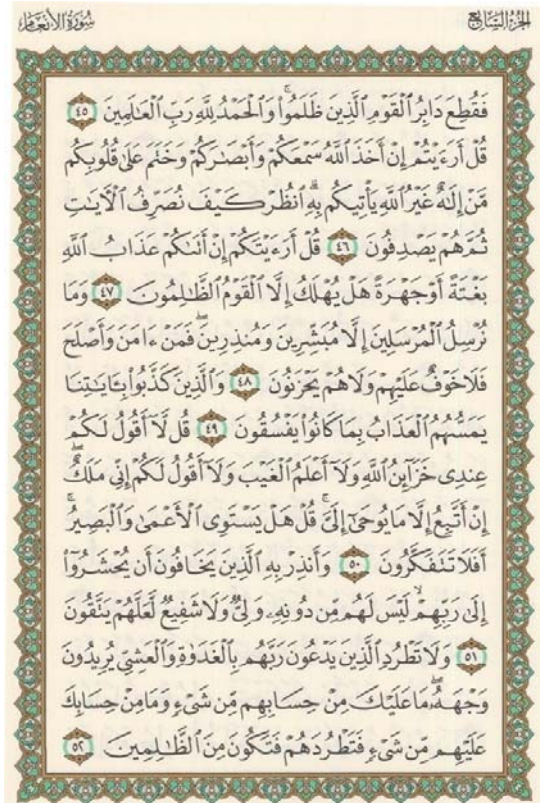 الجزء السابع
سورة الأنعام
فَقُطِعَ دَابِرُ ٱلْقَوْمِ ٱلَّذِينَ ظَلَمُوا۟ ۚ وَٱلْحَمْدُ لِلَّهِ رَبِّ ٱلْعَـٰلَمِينَ ٤٥
قُلْ أَرَءَيْتُمْ إِنْ أَخَذَ ٱللَّهُ سَمْعَكُمْ وَأَبْصَـٰرَكُمْ وَخَتَمَ عَلَىٰ قُلُوبِكُم
مَّنْ إِلَـٰهٌ غَيْرُ ٱللَّهِ يَأْتِيكُم بِهِ ۗ ٱنظُرْ كَيْفَ نُصَرِّفُ ٱلْـَٔايَـٰتِ
ثُمَّ هُمْ يَصْدِفُونَ ٤٦ قُلْ أَرَءَيْتَكُمْ إِنْ أَتَىٰكُمْ عَذَابُ ٱللَّهِ
بَغْتَةً أَوْ جَهْرَةً هَلْ يُهْلَكُ إِلَّا ٱلْقَوْمُ ٱلظَّـٰلِمُونَ ٤٧ وَمَا
نُرْسِلُ ٱلْمُرْسَلِينَ إِلَّا مُبَشِّرِينَ وَمُنذِرِينَ ۖ فَمَنْ ءَامَنَ وَأَصْلَحَ
فَلَا خَوْفٌ عَلَيْهِمْ وَلَا هُمْ يَحْزَنُونَ ٤٨ وَٱلَّذِينَ كَذَّبُوا۟ بِـَٔايَـٰتِنَا
يَمَسُّهُمُ ٱلْعَذَابُ بِمَا كَانُوا۟ يَفْسُقُونَ ٤٩ قُل لَّآ أَقُولُ لَكُمْ
عِندِى خَزَآئِنُ ٱللَّهِ وَلَآ أَعْلَمُ ٱلْغَيْبَ وَلَآ أَقُولُ لَكُمْ إِنِّى مَلَكٌ ۖ
إِنْ أَتَّبِعُ إِلَّا مَا يُوحَىٰٓ إِلَىَّ ۚ قُلْ هَلْ يَسْتَوِى ٱلْأَعْمَىٰ وَٱلْبَصِيرُ ۚ
أَفَلَا تَتَفَكَّرُونَ ٥٠ وَأَنذِرْ بِهِ ٱلَّذِينَ يَخَافُونَ أَن يُحْشَرُوٓا۟
إِلَىٰ رَبِّهِمْ ۙ لَيْسَ لَهُم مِّن دُونِهِۦ وَلِىٌّ وَلَا شَفِيعٌ لَّعَلَّهُمْ يَتَّقُونَ
٥١ وَلَا تَطْرُدِ ٱلَّذِينَ يَدْعُونَ رَبَّهُم بِٱلْغَدَوٰةِ وَٱلْعَشِىِّ يُرِيدُونَ
وَجْهَهُۥ ۖ مَا عَلَيْكَ مِنْ حِسَابِهِم مِّن شَىْءٍ وَمَا مِنْ حِسَابِكَ
عَلَيْهِم مِّن شَىْءٍ فَتَطْرُدَهُمْ فَتَكُونَ مِنَ ٱلظَّـٰلِمِينَ ٥٢